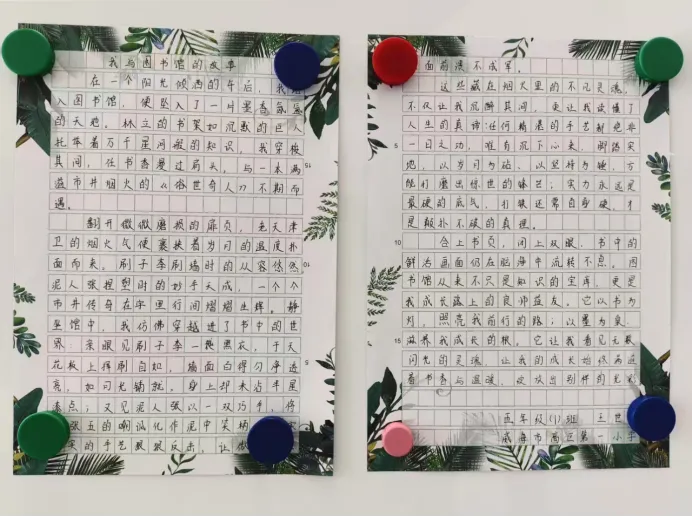 我与图书馆的故事
在一个阳光倾洒的午后，我
入图书馆，便坠入了一片墨香氤氲
的天地。林立的书架如沉默的巨人
托举着万千星河般的知识，我穿梭
其间，任书香漫过肩头，与一本满
溢市井烟火的《俗世奇人》不期而
遇。
翻开微微磨损的扉页，老天津
卫的烟火气便裹挟着岁月的温度扑
面而来。刷子李刷墙时的从容悠然
泥人张捏塑时的妙手天成，一个个
市井传奇在字里行间熠熠生辉。静
坐馆中，我仿佛穿越进了书中的世
界：亲眼见刷子李一袭黑衣，于天
花板上挥刷自如，墙面白得匀净透
亮，如月光铺就，身上却未沾半星
点；又见泥人张以一双巧手，将
张五的嘲讽化作泥中笑柄，
的手艺狠狠反击，让
面前溃不成军。
这些藏在烟火里的不凡灵魂，
不仅让我沉醉其间，更让我读懂了
人生的真谛：任何精湛的手艺都绝非
5
一日之功，唯有沉下心来，脚踏实
地，以岁月为砧，以坚持为锤，方
能打磨出惊世的锋芒；实力永远是
最硬的底气，打铁还需自身硬，才
是颠扑不破的真理。
10
合上书页，闭上双眼，书中的
鲜活画面仍在脑海中流转不息。图
书馆从来不只是知识的宝库，更是
我成长路上的良师益友。它以书为
灯，照亮我前行的路；以墨为泉，
15
滋养我成长的根。它让我看见无数
闪光的灵魂，让我的成长始终
着书香与温暖，绽放出别样的光彩
五年级(1)班 王世
威海市高区第一小学